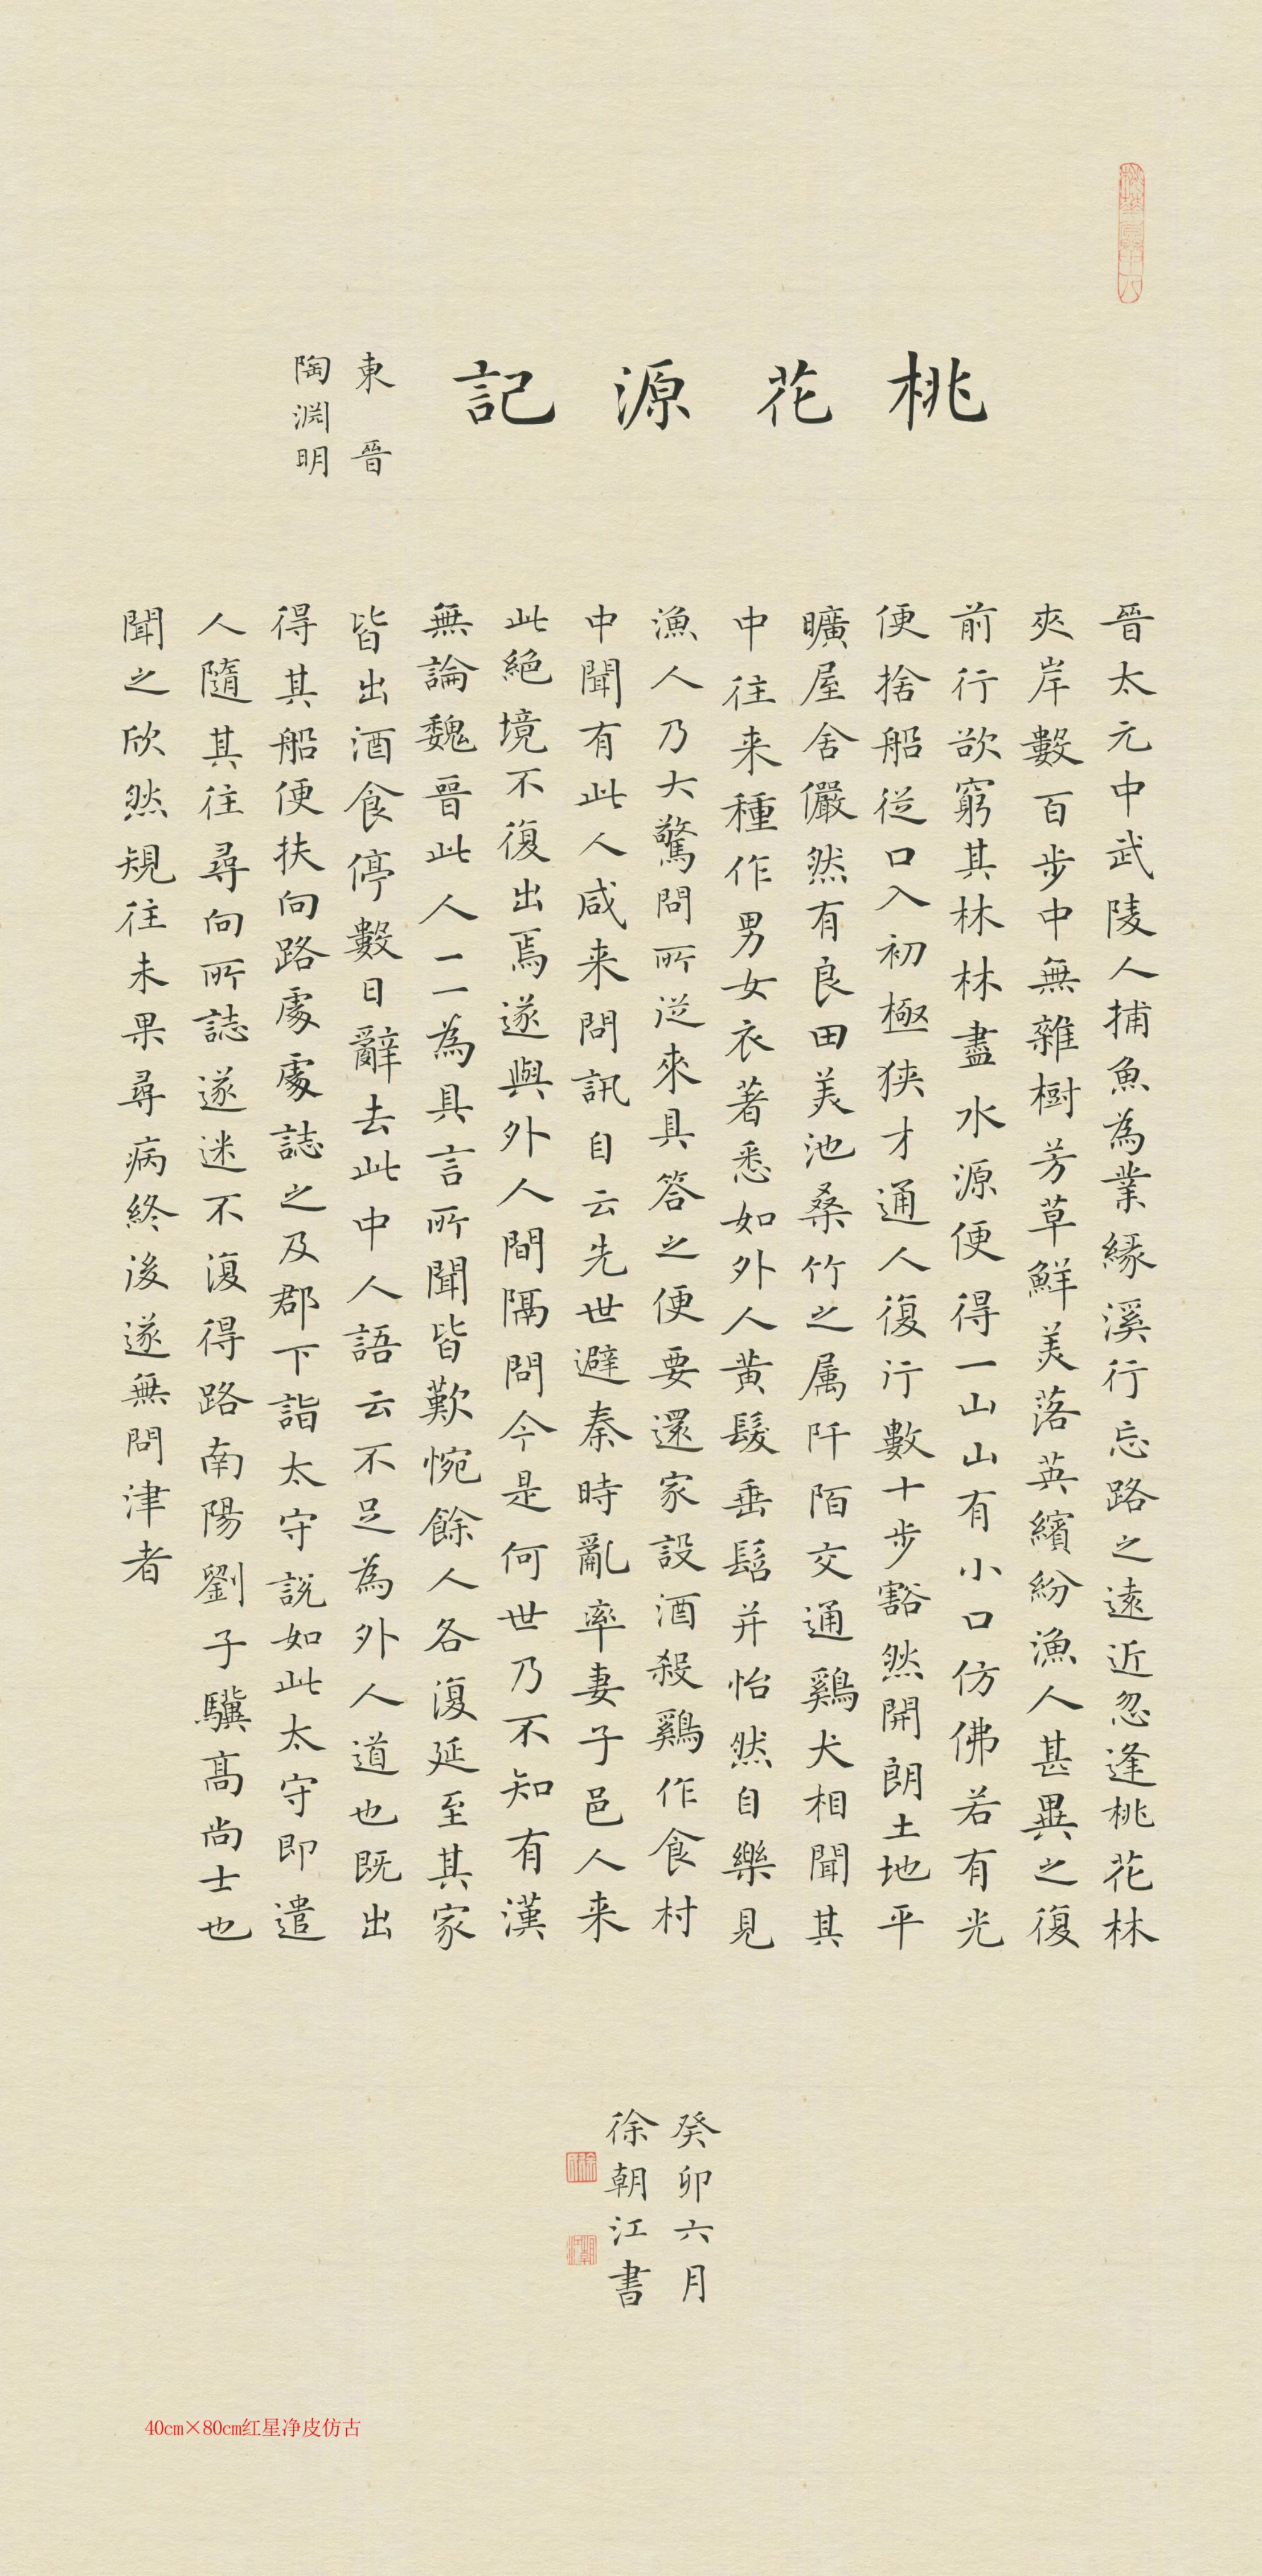 桃花源記
東晉
陶淵明
晉太元中武陵人捕魚為業緣溪行忘路之遠近忽逢桃花林
夾岸數百步中無雜樹芳草鮮美落英繽紛漁人甚異之復
前行欲窮其林林盡水源便得一山山有小口仿佛若有光
便捨船從口入初極狭才通人復行數十步豁然開朗土地平
曠屋舍儼然有良田美池桑竹之属阡陌交通鷄犬相聞其
中往来種作男女衣著悉如外人黄髮垂髫并怡然自樂見
漁人乃大驚問所從來具答之便要還家設酒殺鷄作食村
中聞有此人咸来問訊自云先世避秦時亂率妻子邑人来
此絕境不復出焉遂與外人間隔問今是何世乃不知有漢
無論魏晉此人一一為具言所聞皆歎惋餘人各復延至其家
皆出酒食停數日辭去此中人語云不足為外人道也既出
得其船便扶向路處處誌之及郡下詣太守説如此太守即遣
人隨其往尋向所誌遂迷不復得路南陽劉子驥高尚士也
聞之欣然規往未果尋病終後遂無問津者
癸卯六月
徐朝江書
40cm×80cm红星净皮仿古